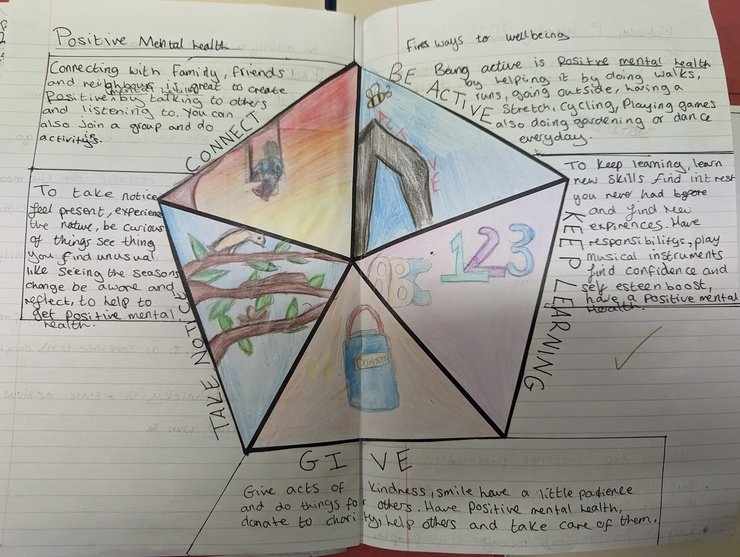 Positive Mental health
Fives ways to wellbeing
Connecting with Family, friends
and neighbours is great to create
Positive by talking to others
and listening to. You can
also Join a group and do
activitys.
CONNECT
BE ACTIVE
Being active is Positve mental health
by helping it by doing walks,
runs, going outside, having a
Stretch, cycling, Playing games
also doing gardening or dance
everyday.
BE
ACTIVE
To take notice
feel present, experience
the nature, be curious
of things see thing
you find unusual
like seeing the seasons
change be aware and
reflect, to help to
get positive mental
health.
TAKE NOTICE
To keep learning, learn
new skills find intrest
you never had before
and find new
expriences. Have
responsibilitys, play
musical instruments
find confidence and
self esteen boost,
have a positive mental
health.
KEEP LEARNING
ABC
123
DONATE
GIVE
Give acts of kindness, smile have a little patience
and do things for others. Have Positive mental health,
donate to charity, help others and take care of them.